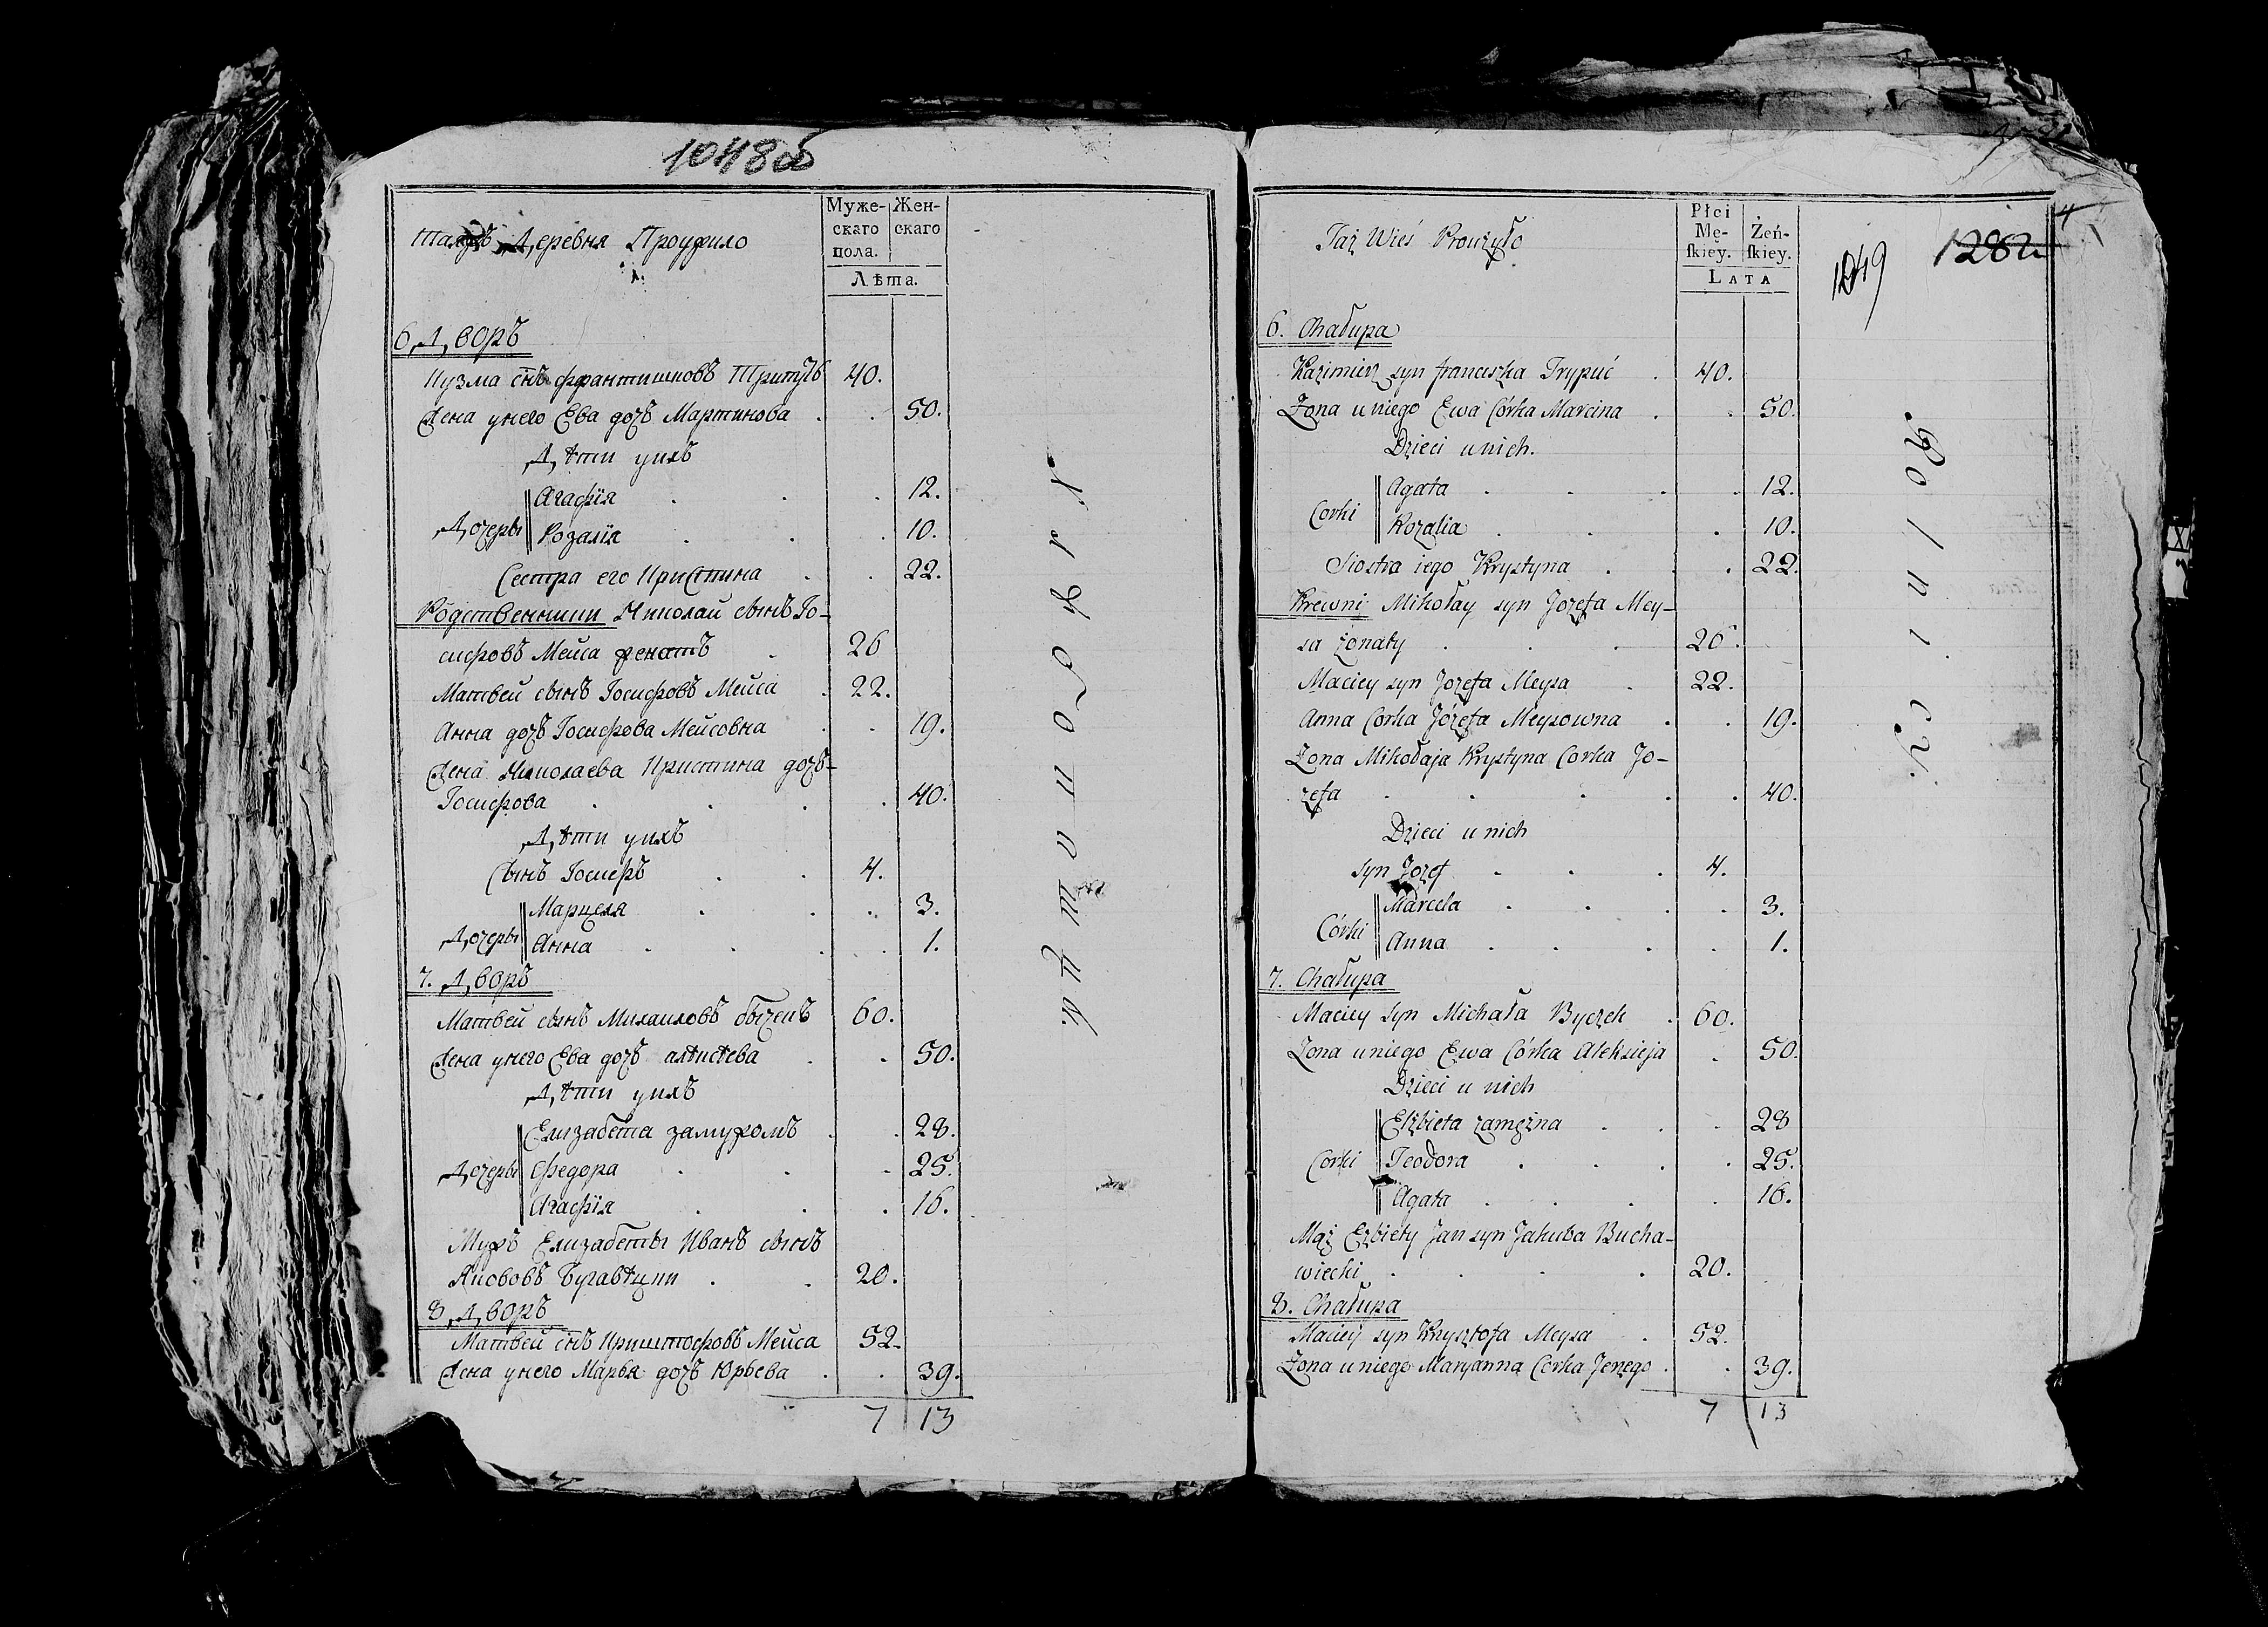 1048об
Таяжъ Деревня Проужило
Муже-
скаго
пола.
Жен-
скаго
Лѣта.
6 Дворъ
Кузма снъ Франтишковъ Трипуть 40.
Жена унего Ева дочь Мартинова . . 50.
Дѣти унхъ
Дочеры
Агафія . . . 12.
Розалія . . . 10.
Сестра его Кристина . . 22.
Родственники Николай сынъ Іо-
сифовъ Мейса женатъ . 26
Матвей сынъ Іосифовъ Мейса . 22.
Анна дочь Іосифова Мейсовна . . 19.
Жена Николаева Кристина дочь
Іосифова . . . . 40.
Дѣти унхъ
Сынъ Іосифъ . . 4.
Дочеры
Марцеля . . . 3.
Анна . . . . 1.
7. Дворъ
Матвей сынъ Михаиловъ бычекъ 60.
Жена унего Ева дочь алѣисѣева . . 50.
Дѣти унхъ
Дочеры
Елизабета замужомъ . . 28.
Федора . . . 25.
Агафія . . . 16.
Мужъ Елизабеты Иванъ сынъ
Якововъ Бугавѣцки . . 20.
8 Дворъ
Матвей снъ Криштофовъ Мейса 52.
Жена унего Марья дочь Юрьева . . 39.
7 13
Taż Wieś Proużyło
Płci
Mę-
ſkiey.
Żeń-
ſkiey.
LATA
4
1049
1282
6. Chałupa
Kazimierz syn franciszka Trypuć . 40.
Żona uniego Ewa Córka Marcina . . 50.
Dzieci unich.
Corki
Agata . . . . 12.
Rozalia . . . 10.
Siostra iego Krystyna . . . 22.
Krewni Mikołay syn Jozefa Mey-
sa żonaty . . . 26.
Maciey syn Jozefa Meysa . 22.
Anna Corka Józefa Meysowna . . 19.
Żona Mikołaja Krystyna Corka Jo-
zefa . . . . . 40.
Dzieci u nich
syn Jozef . . . 4.
Córki
Marcela . . . . 3.
Anna . . . . 1.
7. Chałupa
Maciey Syn Michała Byczek . 60.
Żona uniego Ewa Córka Aleksieja . 50.
Dzieci u nich
Corki
Elżbieta zamężna . . . 28
Teodora . . . . 25.
Agata . . . . 16.
Mąż Elżbiety Jan syn Jakuba Bucha-
wiecki . . . . 20.
8. Chałupa
Maciey syn Krysztofa Meysa . 52.
Żona uniego Maryanna Corka Jerzego . . 39.
7 13